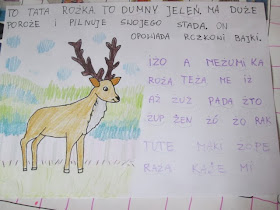 TO TATA ROŻKA. TO DUMNY JELEŃ, MA DUŻE
POROŻE I PILNUJE SWOJEGO STADA. ON
OPOWIADA ROŻKONI BAJKI.
IŻO A MEŻUMI KA
ROŻA TEŻA ME IŻ
AŻ ZUŻ PADA ŻTO
ZUP ŻEN ZŻ ŻO RAK
TUTE MAKI ŻOPE
RAŻA KAŻE MI